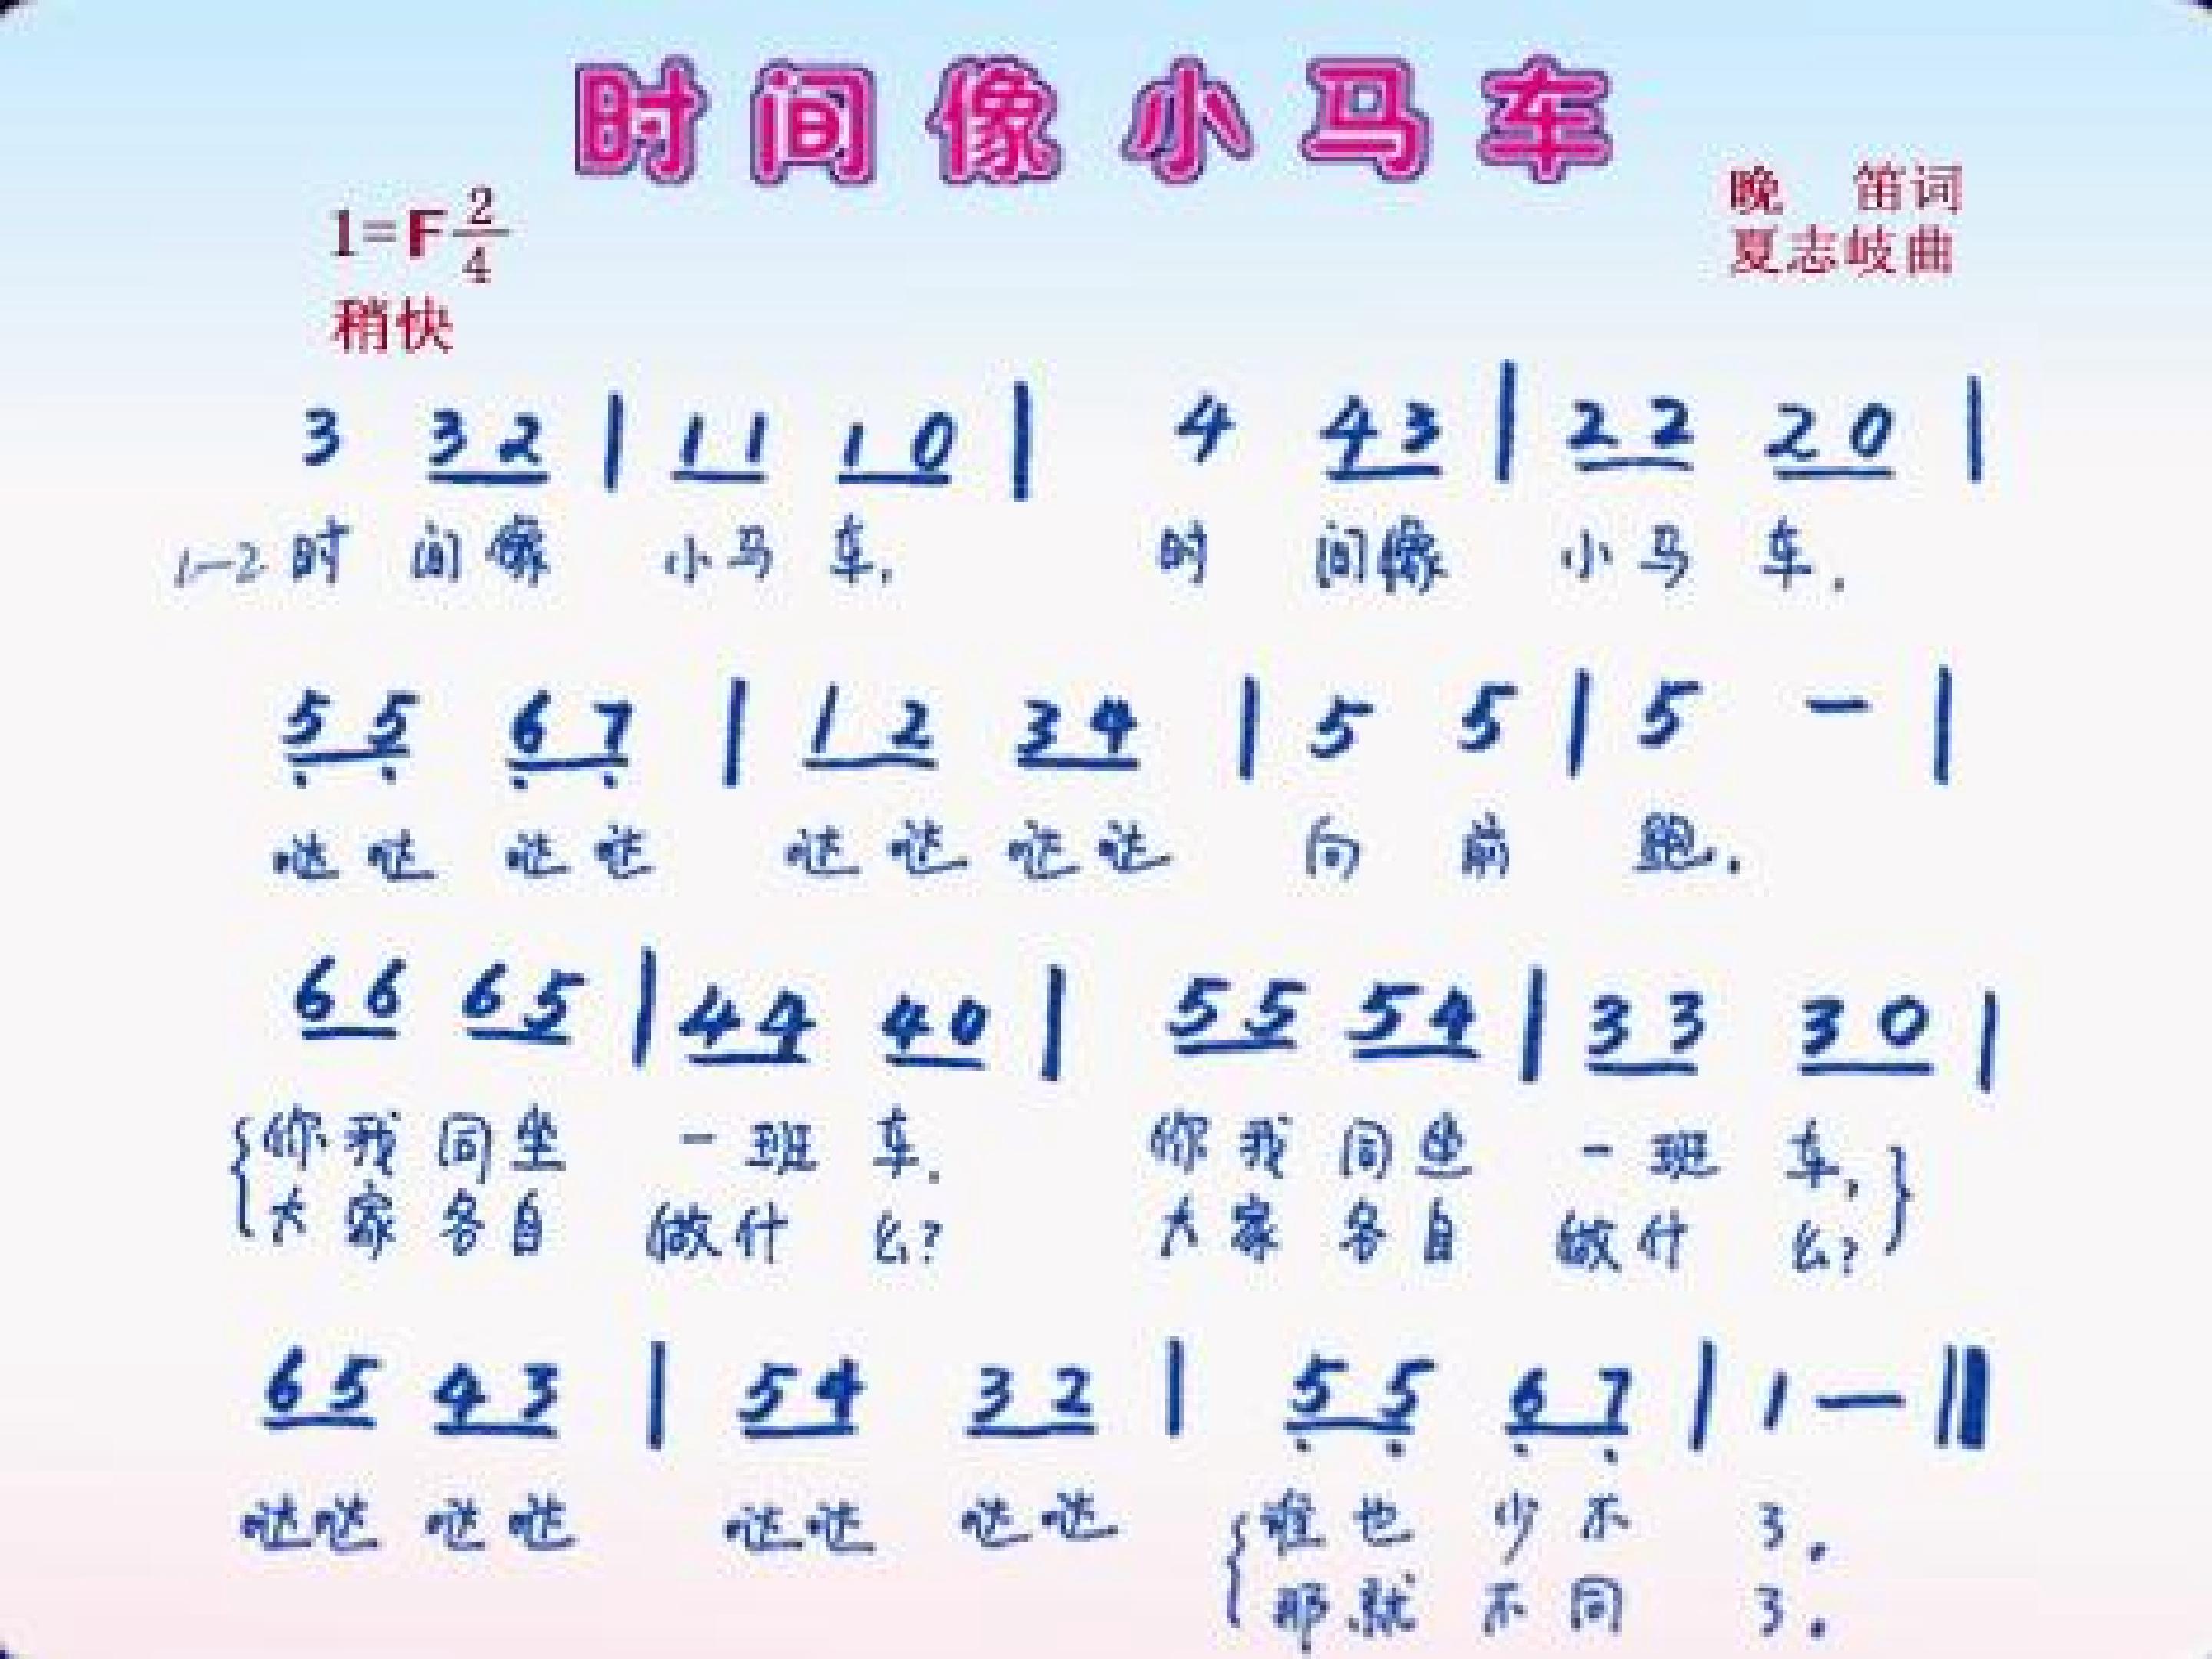 时间像小马车
1=F 2/4
晚 笛词
夏志岐曲
稍快
3 3 2 | 1 1 1 0 | 4 4 3 | 2 2 2 0 |
1-2 时 间像 小马 车. 时 间像 小马 车.
5 5 6 7 | 1 2 3 4 | 5 5 | 5 — |
哒哒 哒哒 哒哒 哒哒 向 前 跑.
6 6 6 5 | 4 4 4 0 | 5 5 5 4 | 3 3 3 0 |
你我 同坐 一班 车. 你我 同坐 一班 车,
大家 各自 做什 么? 大家 各自 做什 么?
6 5 4 3 | 5 4 3 2 | 5 5 6 7 | 1 — ‖
哒哒 哒哒 哒哒 哒哒 谁也 少不 了.
那就 不同 了.